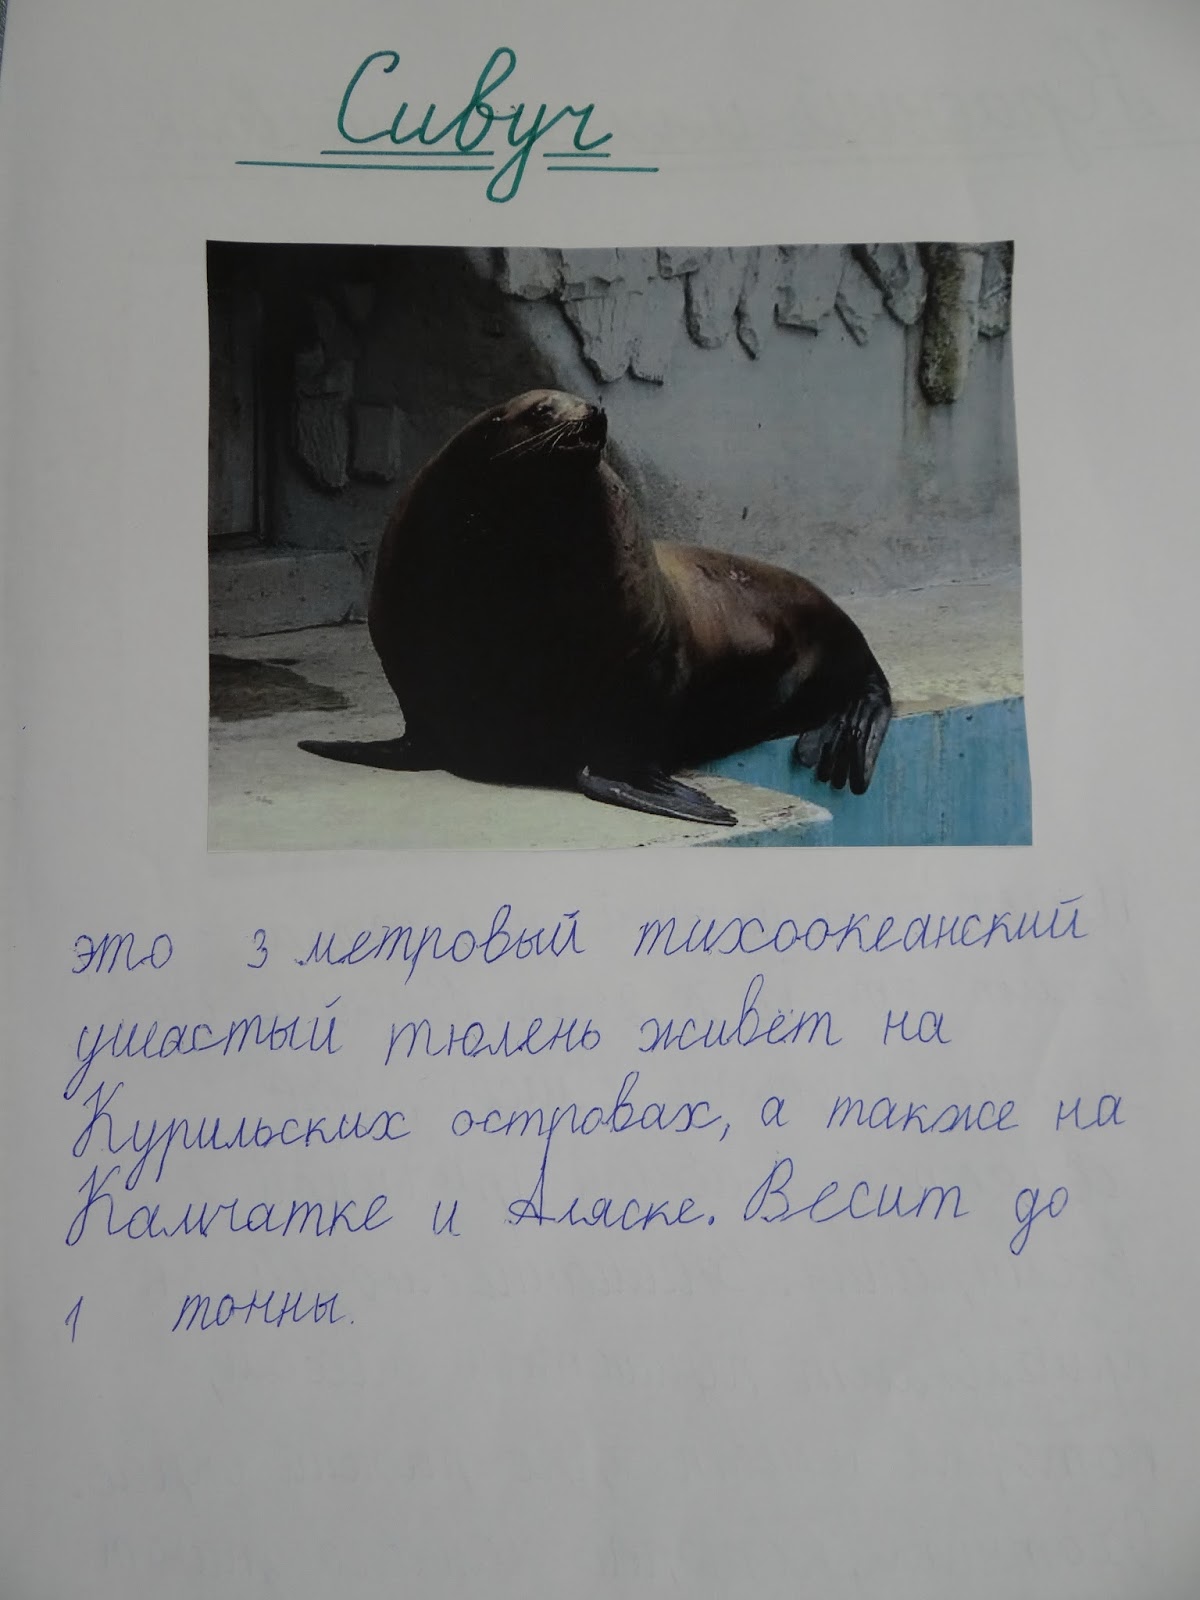 Сивуч
это 3 метровый тихоокеанский
ушастый тюлень живёт на
Курильских островах, а также на
Камчатке и Аляске. Весит до
1 тонны.